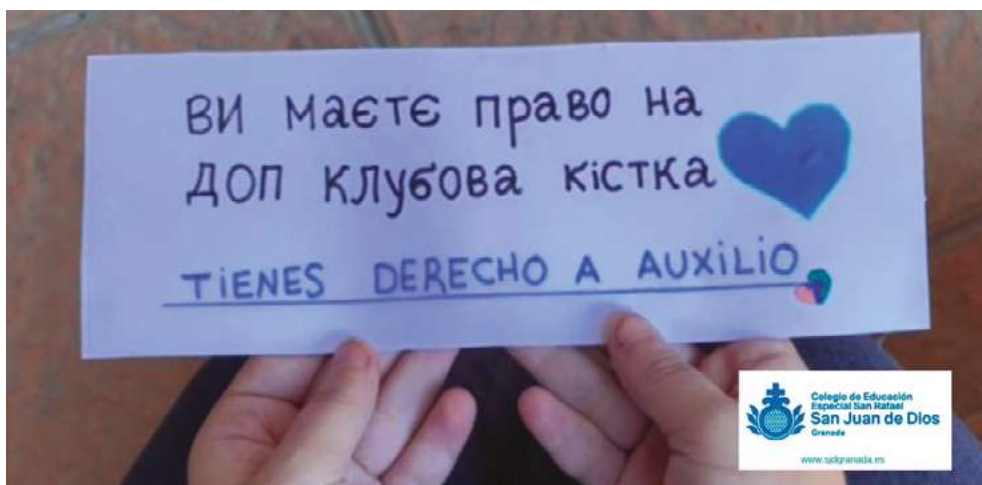 ВИ МаЄТЄ право на
ДОП КЛУБОВа КіСТКа
TiENES DERECHO A AUXiLiO
Colegio de Educación
Especial San Rafael
San Juan de Dios
Granada
www.sjdgranada.es